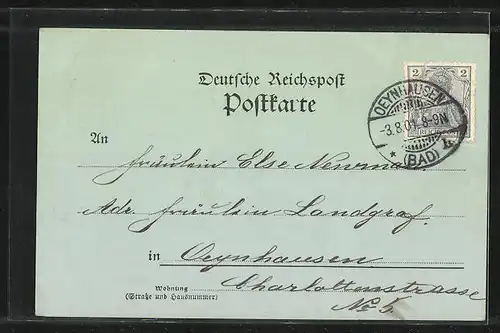 Deutsche Reichspost
Postkarte
2 2
OEYNHAUSEN
-3.8.01 8-9N
* (BAD)
An Fräulein Else Neuman
Adr. Fräulein Landgraf.
in Oeynhausen
Wohnung Charlottenstrasse
(Straße und Hausnummer)
No 5.